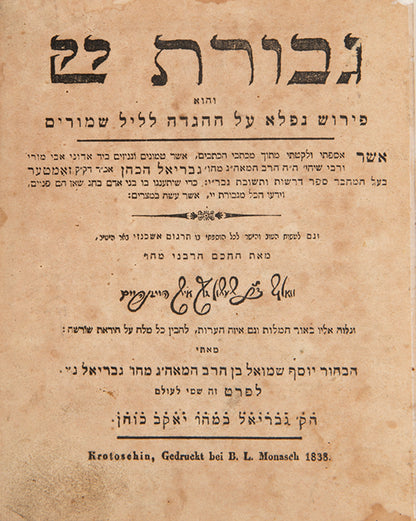 גבורת יי
והוא
פירוש נפלא על ההגדה לליל שמורים
אשר אספתי ולקטתי מתוך מכתבי הכתבים, אשר טמונים וגנוזים ביד אדוני אבי מורי
ורבי שיחי' ה"ה הרב המאה"ג מהו' גבריאל הכהן אב"ד דק"ק
בעל המחבר ספר דרשות ותשובת נכר"י: כדי שיתענגו בו בני אדם בחג שאן הם פנוים,
וידעו הכל מגבורת יי, אשר עשה במצרים:
וגם לעשות הטוב והישר לכל הוספתי בו תרגום אשכנזי באר היטיב,
מאת החכם הרבני מהו'
ונלוה אליו באור המלות וגם איזה הערות, להבין כל מלה על הוראת שורשה:
מאתי
הבחור יוסף שמואל בן הרב המאה"ג מהו' גבריאל נ"י
לפרט זה שמי לעולם
הק' גבריאל במהו' יאקב כוהן
Krotoschin, Gedruckt bei B. L. Monasch 1838.